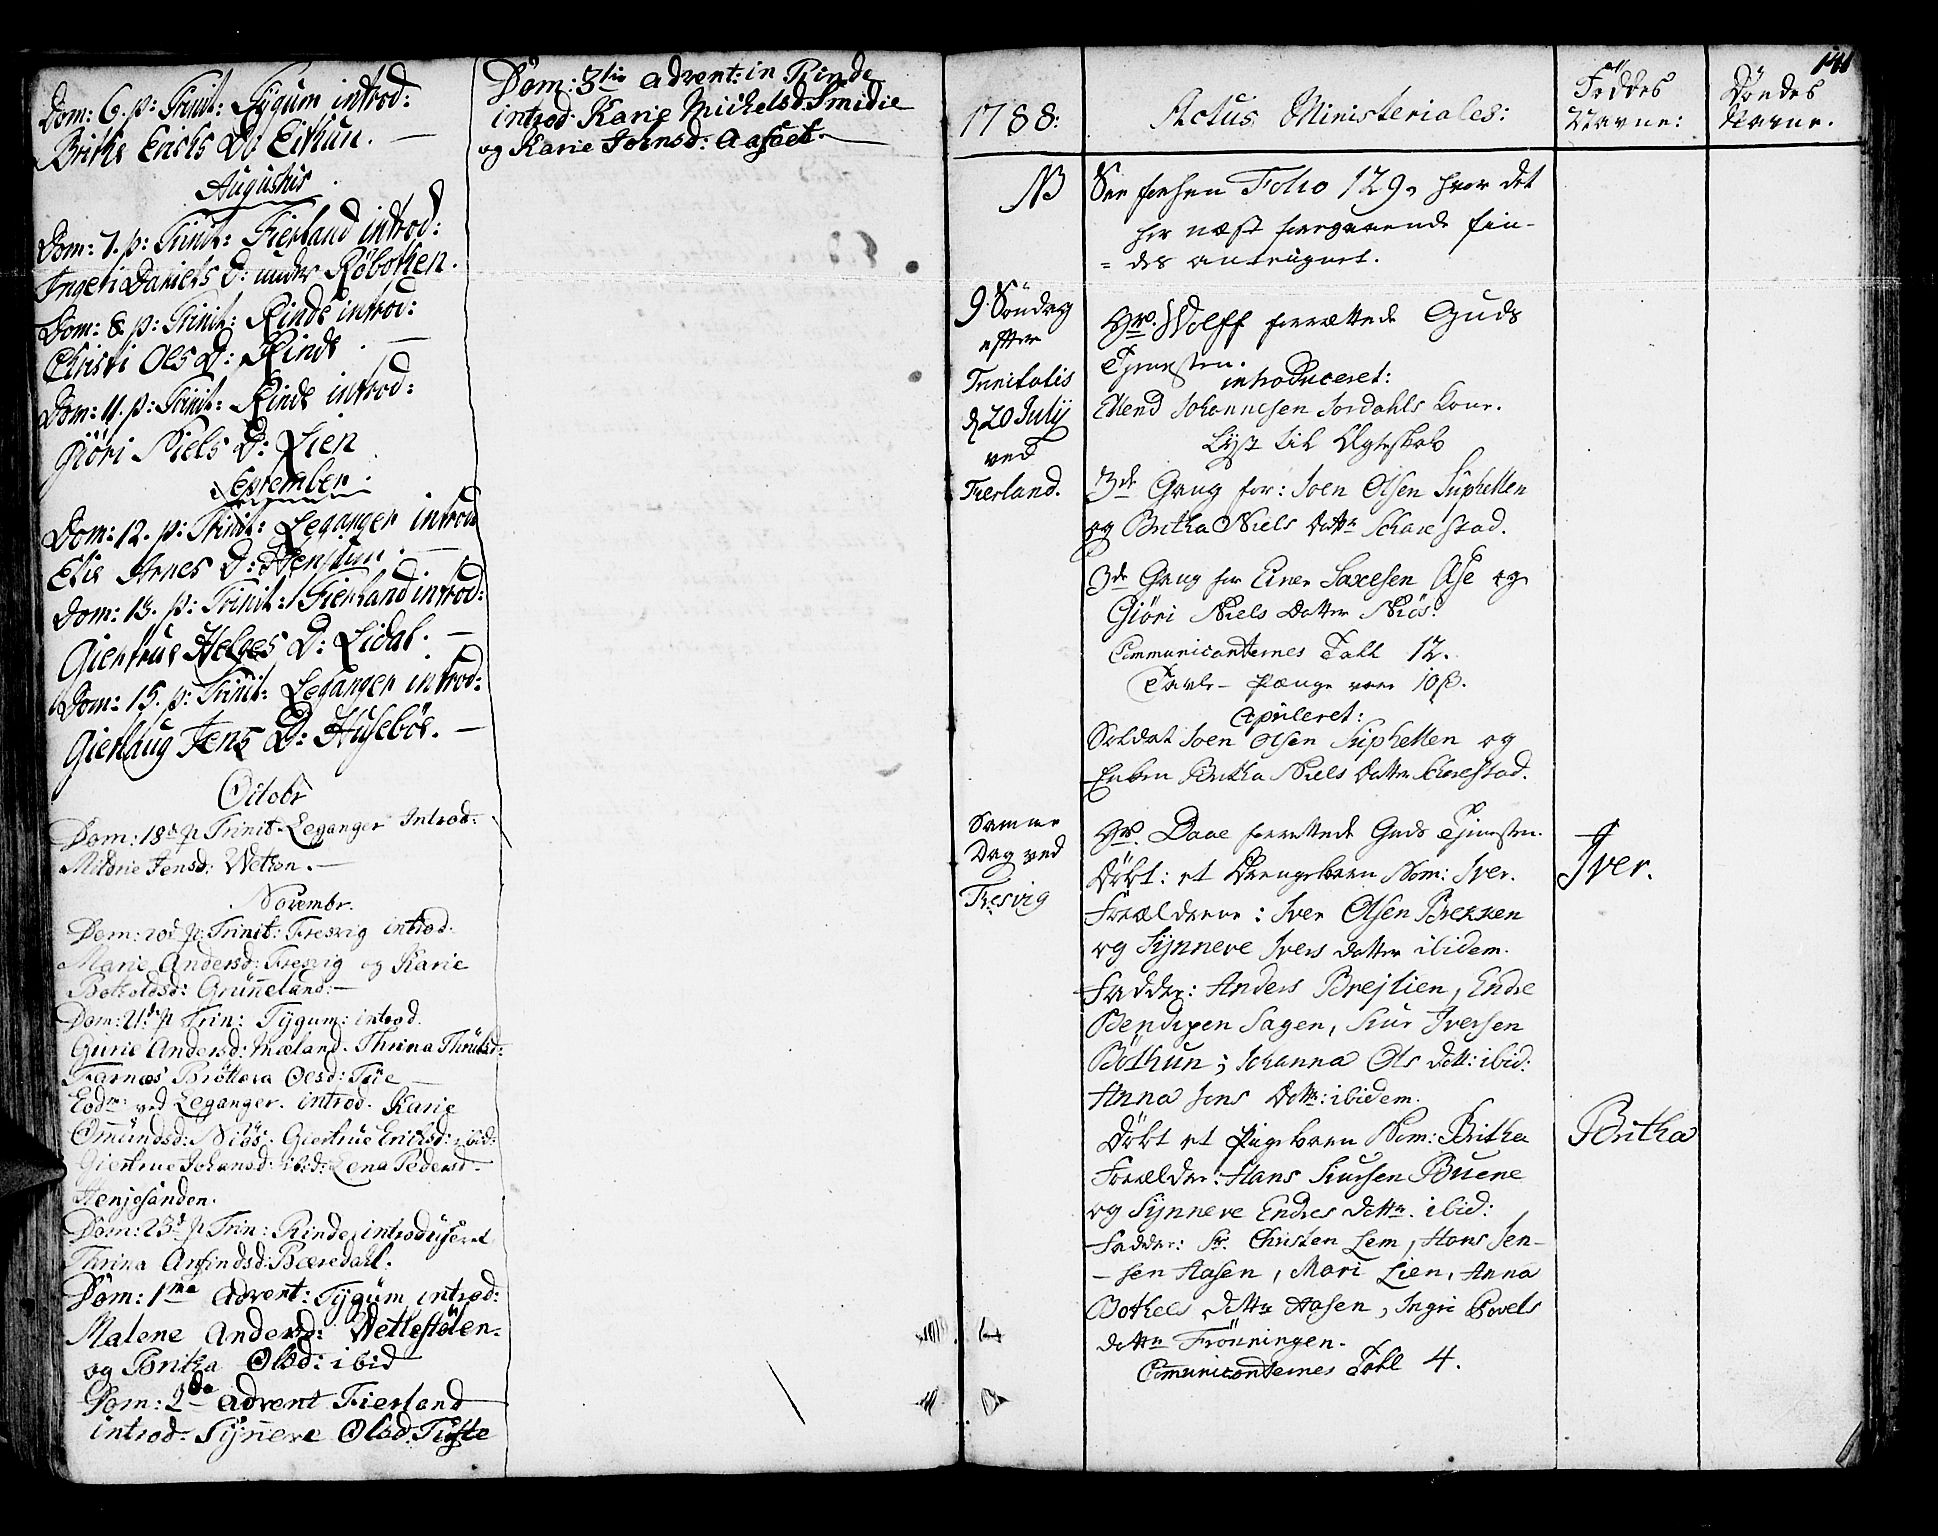 Dom: 6. p: Trinit: Tygum introd:
Brithe Erichs D: Eithun. —
Augustus
Dom: 7. p: Trinit: Fierland introd:
Ingeri Daniels D: under Røbothen.
Dom: 8. p: Trinit: Rinde introd:
Christi Oles D: Rinde. —
Dom: 11. p: Trinit: Rinde introd:
Giöri Niels D: Lien
September
Dom: 12. p: Trinit: Leganger introd
Elie Arnes D: Henjum. —
Dom: 13. p: Trinit: Fierland introd:
Giertrue Helges D: Lidal. —
Dom: 15. p: Trinit: Leganger introd:
Gierthug Jens D: Huseböe. —
Octobr
Dom: 18de p Trinit: Leganger Introd:
Jensd: Wetten. —
Novembr.
Dom: 20de p: Trinit: Fresvig introd.
Marie Andersd: Fresvig og Karie
Botholdsd: Grünneland: —
Dom: 21de p Trin: Tygum: introd.
Gurie Andersd: Mæland. Thrina
Farnæs Olsd: —
Eodm: ved Leganger. introd. Karie
Omündsd: Niös: Giertrue Erichsd: ibid:
Giertrue Johansd: ibid: Lena Pedersd:
Henjesanden.
Dom: 23de p Trin: Rinde introduseret
Thrina Arfindsd: Bæredahl.
Dom: 1ma Advent: Tygum introd:
Malene Andersd: Wetlestölen
og Britha Olsd: ibid
Dom: 2da Advent Fierland
introd: Synneve Olsd: Tufte
Dom: 3tia Advent: in Rinde
introd: Karie Michelsd: Smidie
og Karie Joensd: Aafaet —
1788: Actus Ministeriales: Föddes Navne: Döndes Navne. 141
NB See forhen Folio 129, hvor det
her næst foregaaende fin-
= des antegnet.
9. Söndag efter Trinitatis d 20 July ved Fierland.
Hr. Wolff forrættede Guds
Tjenesten.
introduceret:
Ellend Johannesen Jordahls Kone.
Lyst til Ægteskab
3de Gang for: Joen Olsen Suphellen
og Britha Niels Datter Scharestad.
3de Gang for Einer Saxesen Ase og
Giöri Niels Datter Niös.
Communicanternes Tall 12.
Tavle-Penge vare 10 ß.
Copuleret:
Soldat Joen Olsen Suphellen og
Enken Britha Niels Datter Scharestad.
Samme Dag ved Fresvig
Hr. Daae forrettede Guds Tjenesten.
Döbt: et Drengebarn Nom: Iver. Iver.
Forældrene: Iver Olsen Brekken
og Synneve Ivers datter ibidem.
Fadder: Anders Brejlien, Endre
Bendixen Sagen, Siur Iversen
Böthun; Johanna Ols datt: ibid:
Anna Jens Datt: ibidem.
Döbt et Pigebarn Nom: Britha Britha
Forælder: Hans Siursen Buene
og Synneve Endres datter. ibid:
Fadder: Sr. Christen Lem, Hans Jen-
- sen Aasen, Mari Lien, Anna
Bothels datter Aasen, Ingri Povels
datter Frönningen.
Communicanternes Tall 4.